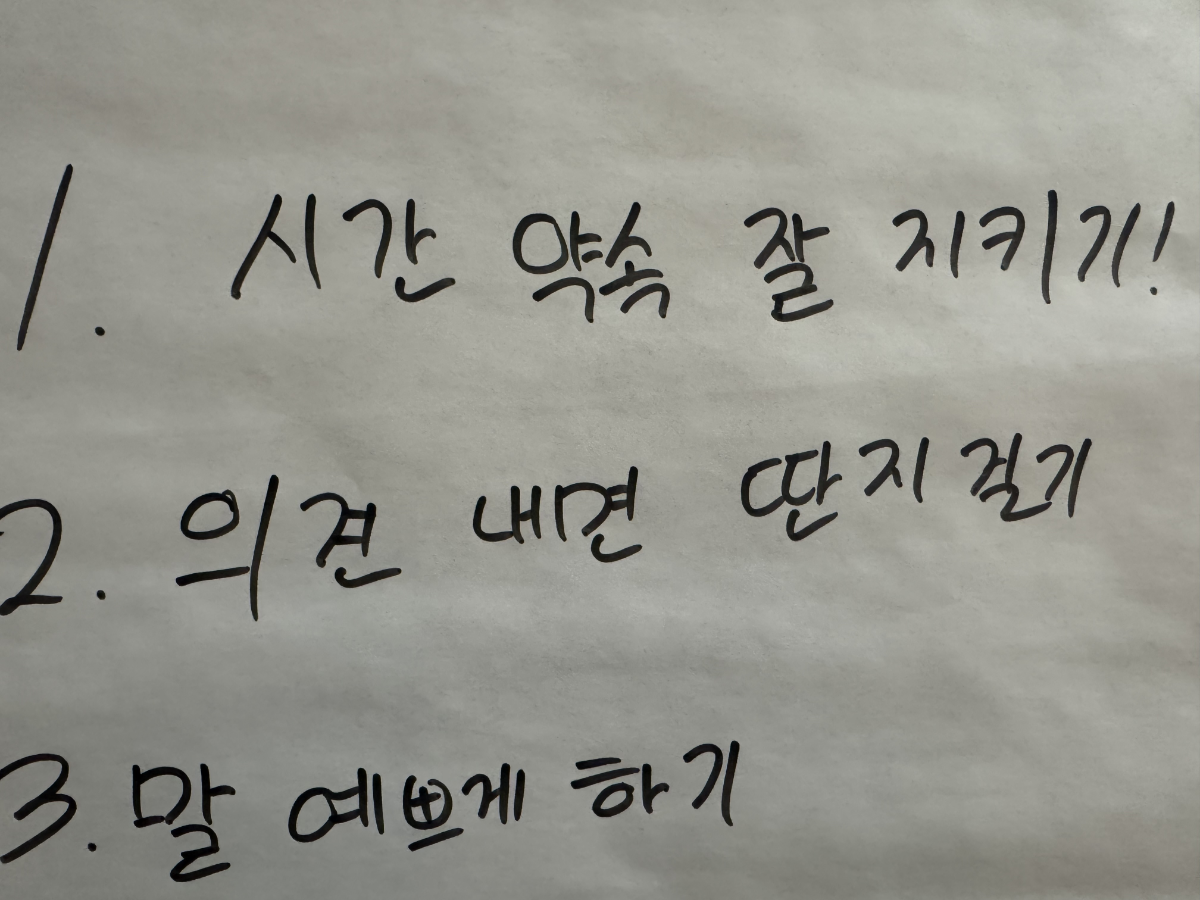 1. 시간 약속 잘 지키기!
2. 의견 내면 딴지 걸기
3. 말 예쁘게 하기